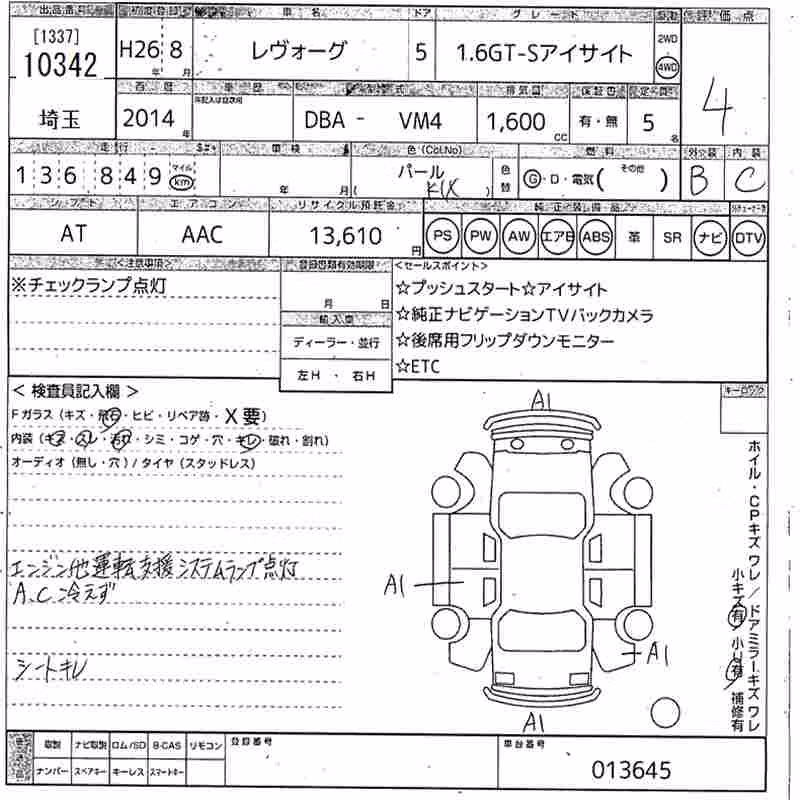 出品番号 初度登録 車名 ドア グレード 評価点
[1337]
10342
埼玉
H26 8
年 月
レヴォーグ 5 1.6GT-Sアイサイト
2WD
4WD
4
西暦 車歴 型式 排気量 保証書 定員
2014 年
DBA - VM4 1,600 cc 有・無 5 名
走行 車検 色(Col.No) 燃料 外装 内装
136849 マイル km
年 月
パール
色替
G・D・電気( その他 )
B C
シフト エアコン リサイクル預託金 純正装備品
AT AAC 13,610 円
PS PW AW エアB ABS 革 SR ナビ DTV
<注意事項> 登録書類有効期限 <セールスポイント>
※チェックランプ点灯
月 日
輸入車
ディーラー・並行
左H ・ 右H
☆プッシュスタート☆アイサイト
☆純正ナビゲーションTVバックカメラ
☆後席用フリップダウンモニター
☆ETC
キーロック
< 検査員記入欄 >
Fガラス(キズ・飛石・ヒビ・リペア跡・X要)
内装(キズ・スレ・汚れ・シミ・コゲ・穴・キレ・破れ・割れ)
オーディオ(無し・穴)/タイヤ(スタッドレス)
エンジン他運転支援システムランプ点灯
A.C.冷えず
シートキレ
A1
A1
A1
A1
ホイル・CPキズワレ/ドアミラーキズワレ
小キズ有 小凹有 補修有
取説 ナビ取説 ロム/SD B-CAS リモコン
ナンバー スペアキー キーレス スマートキー
登録番号
車台番号
013645